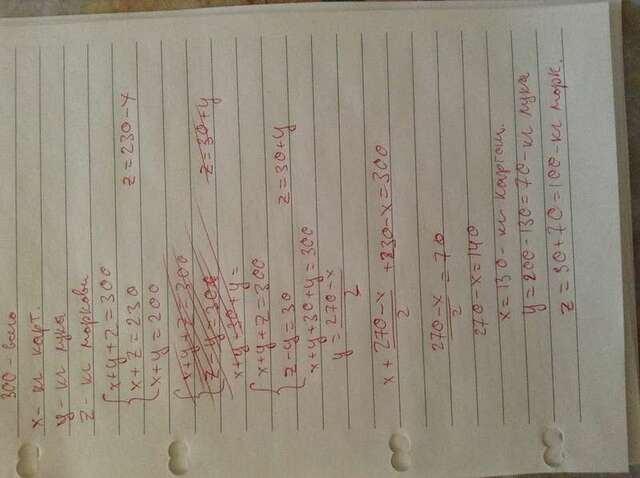 300 - всего
x - кг карт.
y - кг лука
z - кг моркови
{ x+y+z=300
x+z=230 z=230-x
x+y=200
{ x+y+z=300
z-y=300 z=30+y
x+y+30+y=
{ x+y+z=300
z-y=30 z=30+y
x+y+30+y=300
y=\frac{270-x}{2}
x+\frac{270-x}{2}+230-x=300
\frac{270-x}{2}=70
270-x=140
x=130-кг картош.
y=200-130=70-кг лука
z=30+70=100-кг морк.